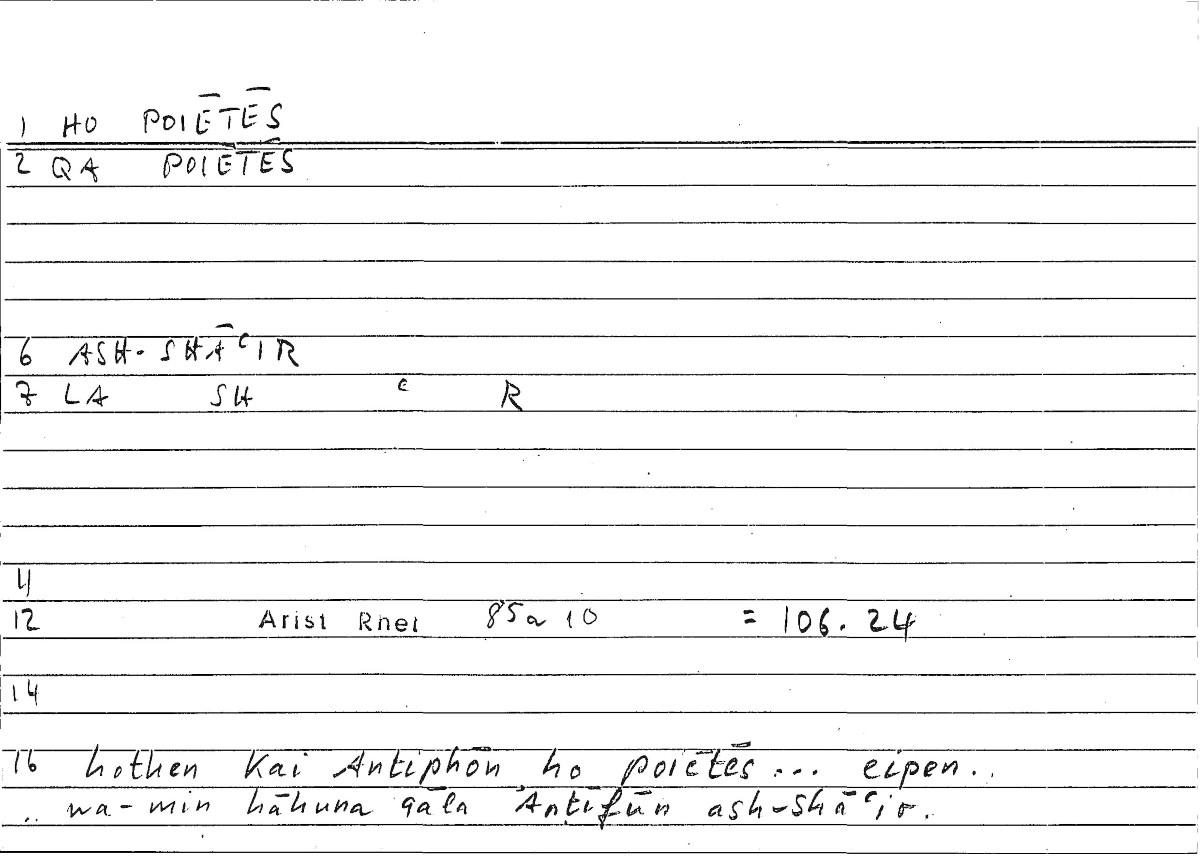 1 HO POIĒTĒS
2 QA POIĒTĒS
6 ASH-SHĀʿIR
7 LA SH ʿ R
4
12 Arist Rhet 85a10 = 106.24
14
16 hothen kai Antiphōn ho poiētēs... eipen..
.. wa-min hāhuna qāla Anṭīfūn ash-shāʿir.